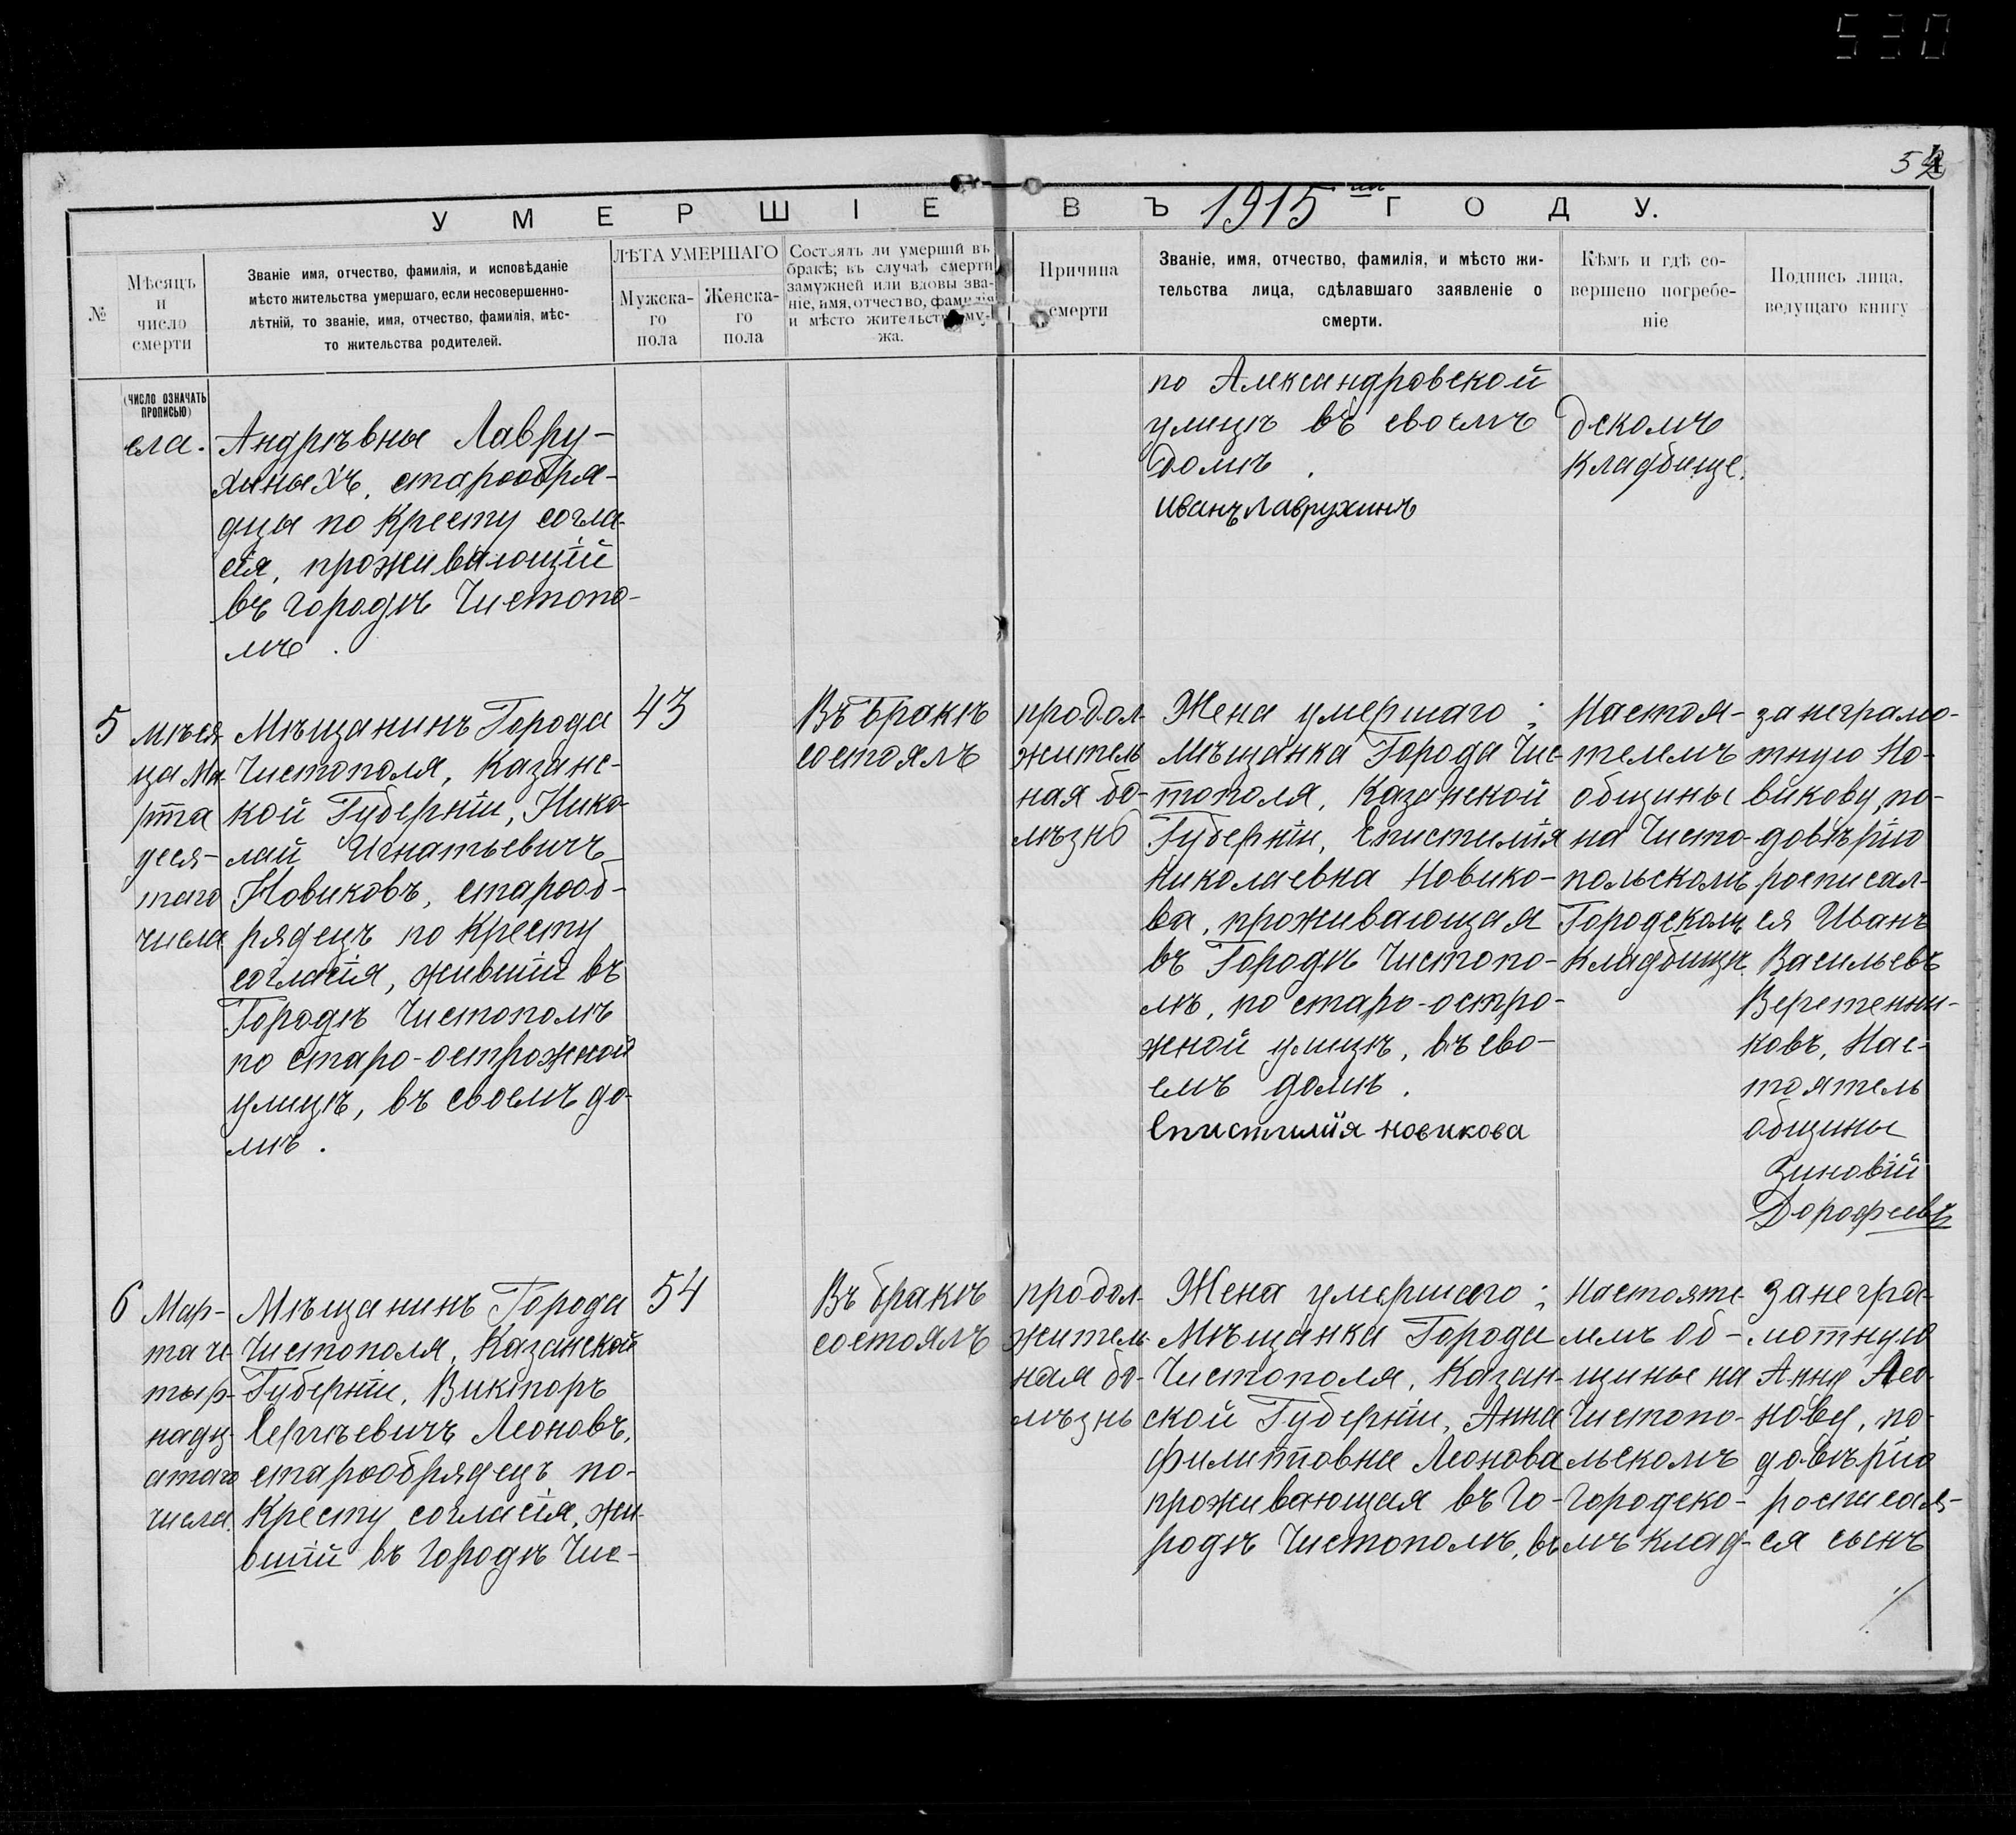 530
52
УМЕРШІЕ ВЪ 1915 ГОДУ.
№
Мѣсяцъ
и
число
смерти
Званіе имя, отчество, фамилія, и исповѣданіе
мѣсто жительства умершаго, если несовершенно-
лѣтній, то званіе, имя, отчество, фамилія, мѣс-
то жительства родителей.
ЛѢТА УМЕРШАГО
Мужска-
го
пола
Женска-
го
пола
Состоялъ ли умершій въ
бракѣ; въ случаѣ смерти
замужней или вдовы зва-
ніе, имя, отчество, фамилія
и мѣсто жительства му-
жа.
Причина
смерти
Званіе, имя, отчество, фамилія, и мѣсто жи-
тельства лица, сдѣлавшаго заявленіе о
смерти.
Кѣмъ и гдѣ со-
вершено погребе-
ніе
Подпись лица,
ведущаго книгу
(ЧИСЛО ОЗНАЧАТЬ
ПРОПИСЬЮ)
сла.
Андрѣвны Лавру-
хиныхъ, старообря-
дцы по Кресту согла-
сія, проживающій
въ городѣ Чистопо-
лѣ.
по Александровской
улицѣ въ своемъ
домѣ.
Иванъ Лаврухинъ
дскомъ
Кладбище.
5
мѣся
ца Ма-
рта
деся-
таго
числа
Мѣщанинъ Города
Чистополя, Казанс-
кой Губерніи, Нико-
лай Игнатьевичъ
Новиковъ, старооб-
рядецъ по Кресту
согласія, жившій въ
Городѣ Чистополѣ
по старо-острожной
улицѣ, въ своемъ до-
мѣ.
43
Въ бракѣ
состоялъ
продол-
житель
ная бо-
лѣзнь
Жена умершаго;
Мѣщанка Города Чис-
тополя, Казанской
Губерніи, Епистилія
Николаевна Новико-
ва, проживающая
въ Городѣ Чистопо-
лѣ, по старо-остро-
жной улицѣ, въ сво-
емъ домѣ.
Епистилия новикова
Настоя-
телемъ
общины
на Чисто-
польскомъ
Городскомъ
Кладбищѣ
за неграмо-
тную Но-
викову, по-
довѣрію
росписал-
ся Иванъ
Васильевъ
Веретенни-
ковъ, Нас-
тоятель
общины
Зиновій
Дорофеевъ
6
Мар-
та че-
тыр-
надц-
атаго
числа.
Мѣщанинъ Города
Чистополя, Казанской
Губерніи, Викторъ
Сергѣевичъ Леоновъ,
старообрядецъ по-
Кресту согласія, жи-
вшій въ Городѣ Чис-
54
Въ бракѣ
состоялъ
продол-
житель-
ная бо-
лѣзнь
Жена умершаго;
Мѣщанка Города
Чистополя, Казан-
ской Губерніи, Анна
Филипповна Леонова
проживающая въ Го-
родѣ Чистополѣ, въ
Настояте-
лемъ об-
щины на
Чистопо-
льскомъ
Городско-
мъ клад-
за негра-
мотную
Анну Лео-
нову, по-
довѣрію
росписал-
ся сынъ